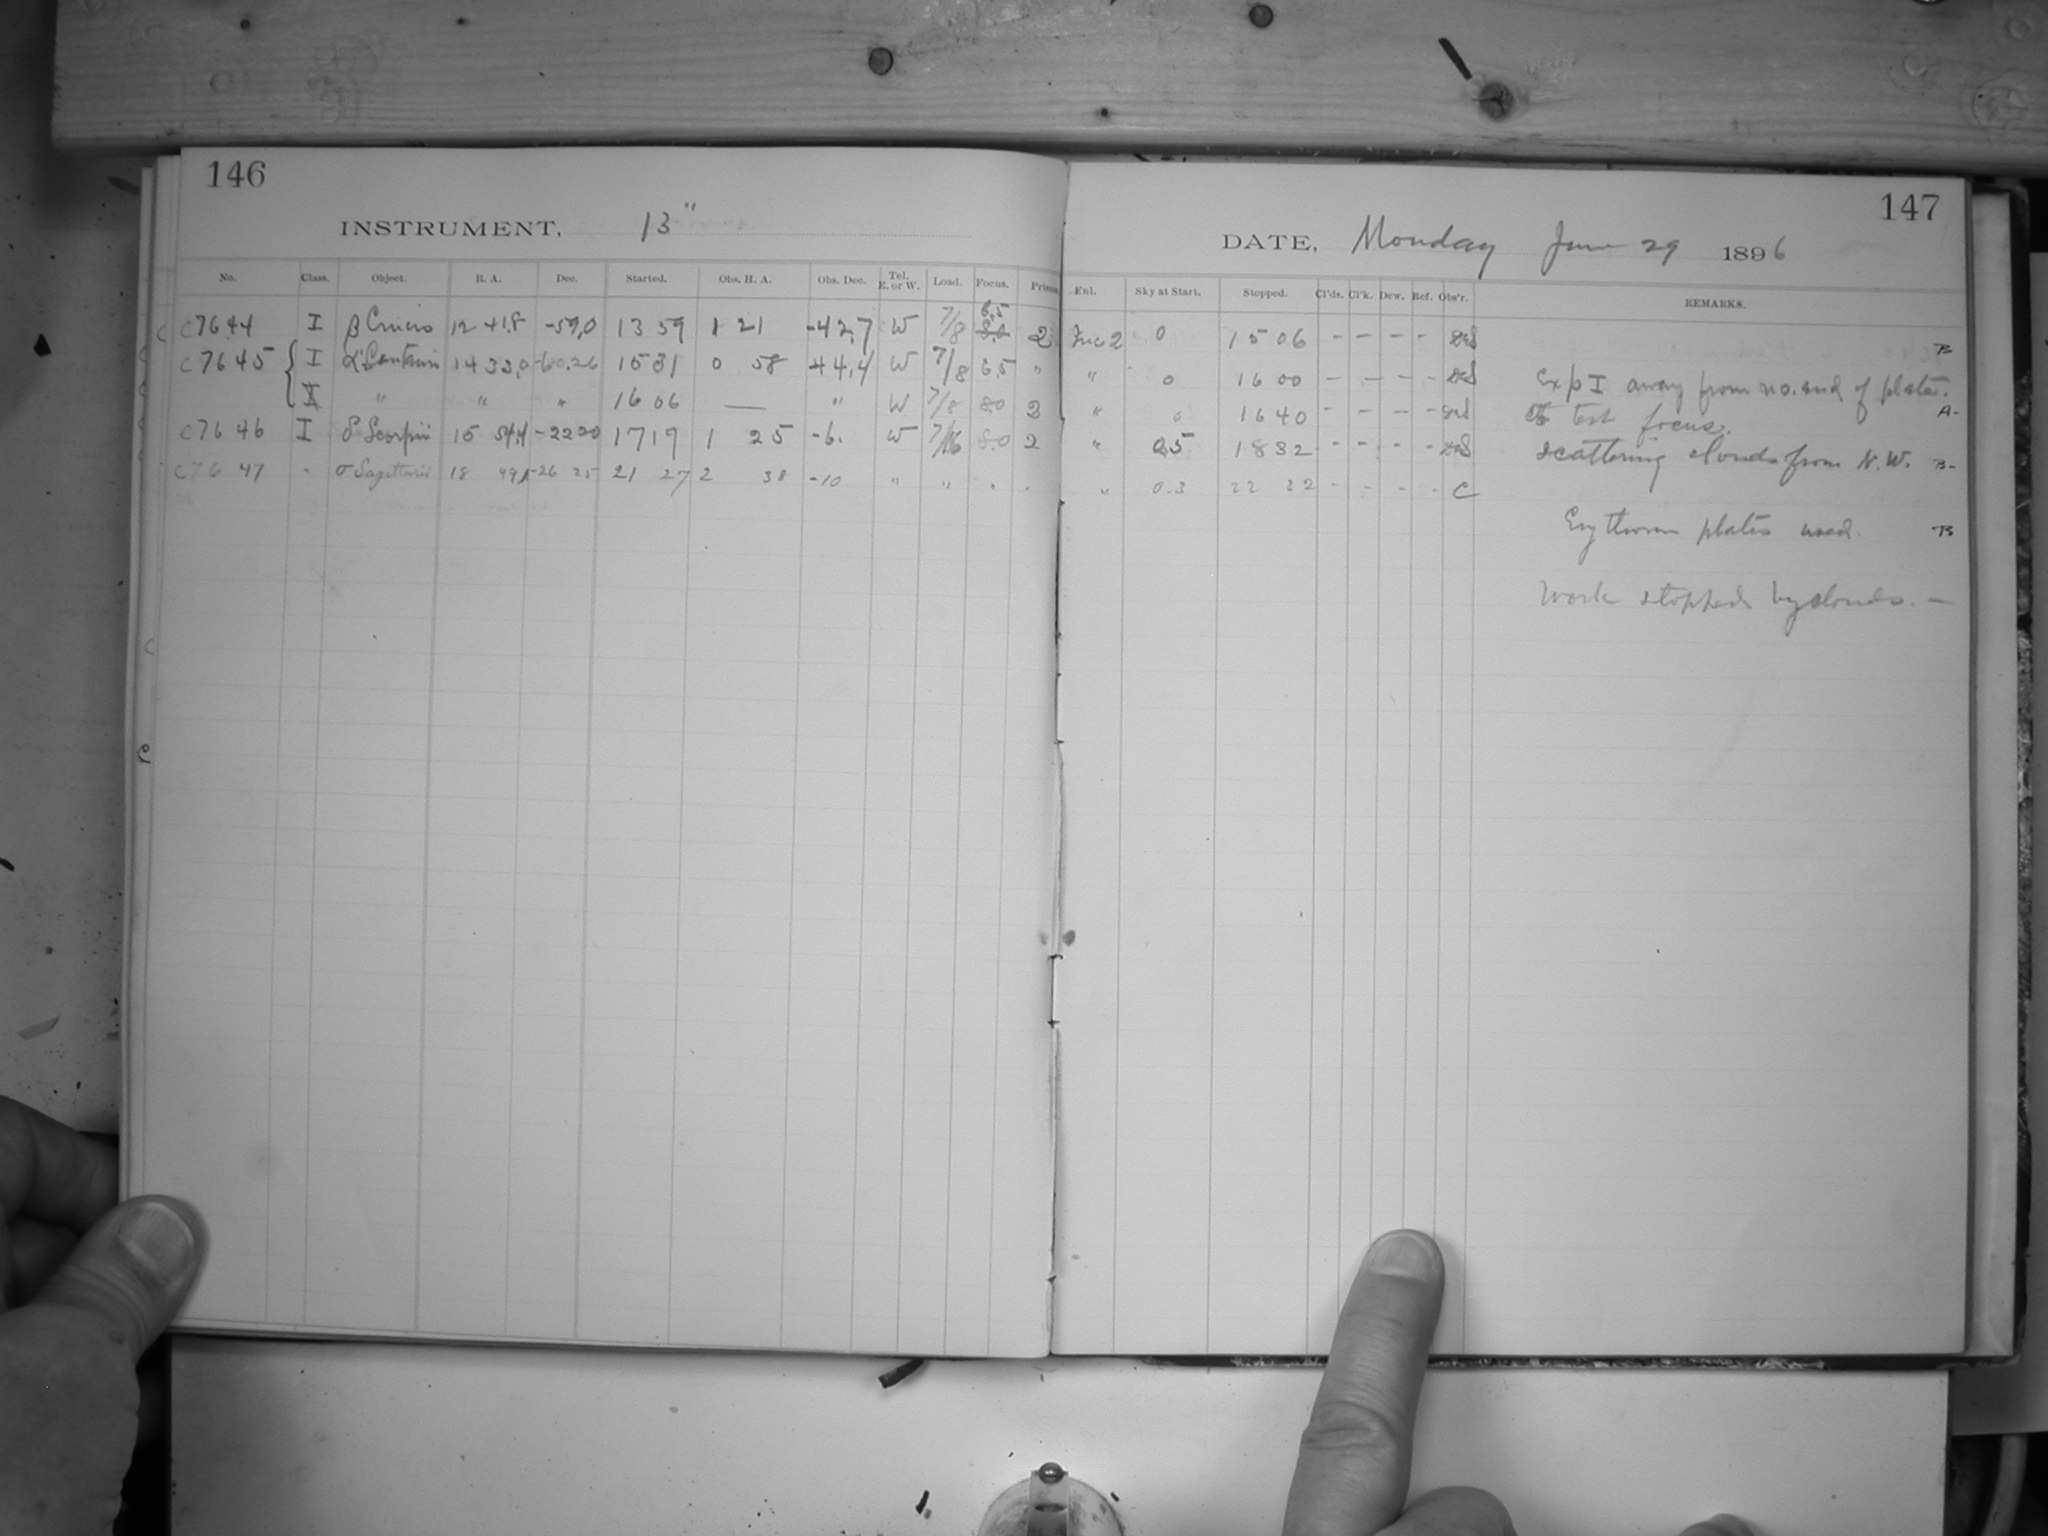 146
147
INSTRUMENT, 13"
DATE, Monday June 29 1896
No. Class. Object. R. A. Dec. Started. Obs. H. A. Obs. Dec. Tel. E. or W. Load. Focus. Prisms. Enl. Sky at Start. Stopped. Cl'ds. Cl'k. Dew. Ref. Obs'r. REMARKS.
C7644 I β Crucis 12 41.8 -59.0 13 59 1 21 -42.7 W 7/8 6.5 8.0 2 2 0 15 06 - - - - B
C7645 I α Centauri 14 33.0 -60.26 15 31 0 58 +44.4 W 7/8 6.5 " " 0 16 00 - - - - Exp I away from no. end of plate.
II " " " 16 06 — " W 7/8 8.0 2 " 0 16 40 - - - - to test focus. A-
C7646 I δ Scorpii 15 54.4 -22 20 17 19 1 25 -6. W 7/16 8.0 2 " 0.5 18 32 - - - - scattering clouds from N.W. B-
C7647 " σ Sagittarii 18 -26 25 21 27 2 38 -10 " " " " " 0.3 22 22 - - - - C
plates used. B
Work stopped by clouds. —